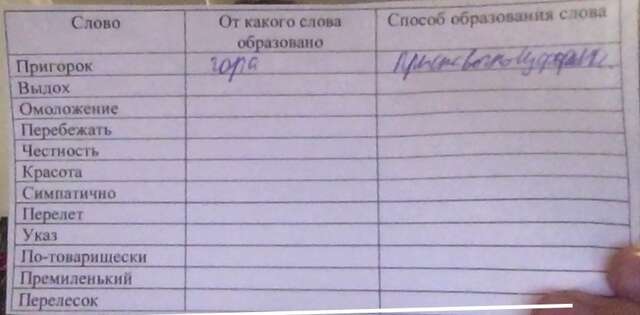 Слово От какого слова образовано Способ образования слова
Пригорок гора
Выдох
Омоложение
Перебежать
Честность
Красота
Симпатично
Перелет
Указ
По-товарищески
Премиленький
Перелесок